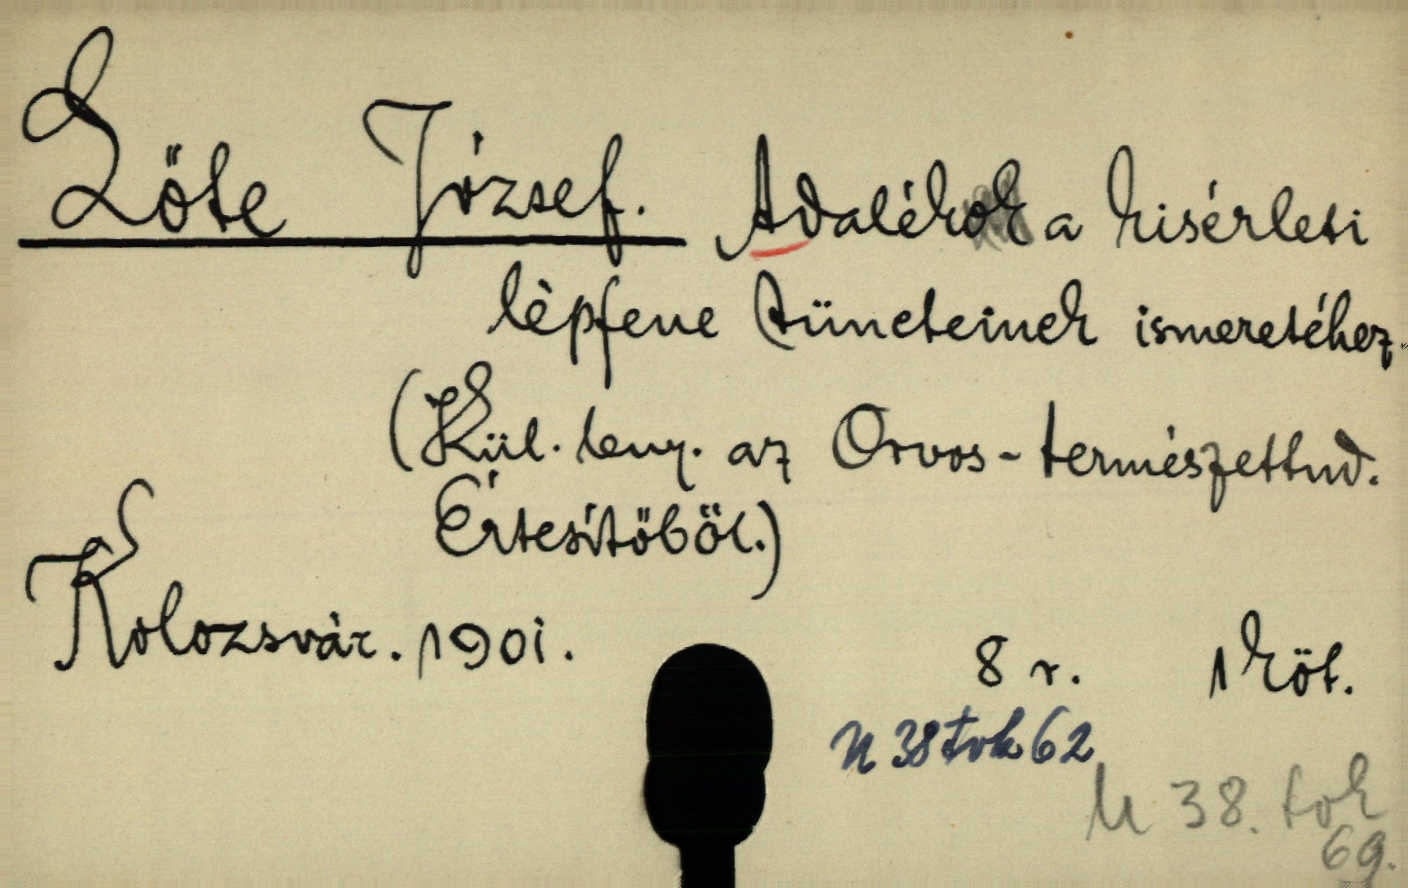 Lőte József. Adalékok a kisérleti
lépfene tüneteinek ismeretéhez.
(Kül. leny. az Orvos-természettud.
Értesítőből.)
Kolozsvár. 1901.
8 r. 1 köt.
U 38 tok 62
U 38. tok
69.